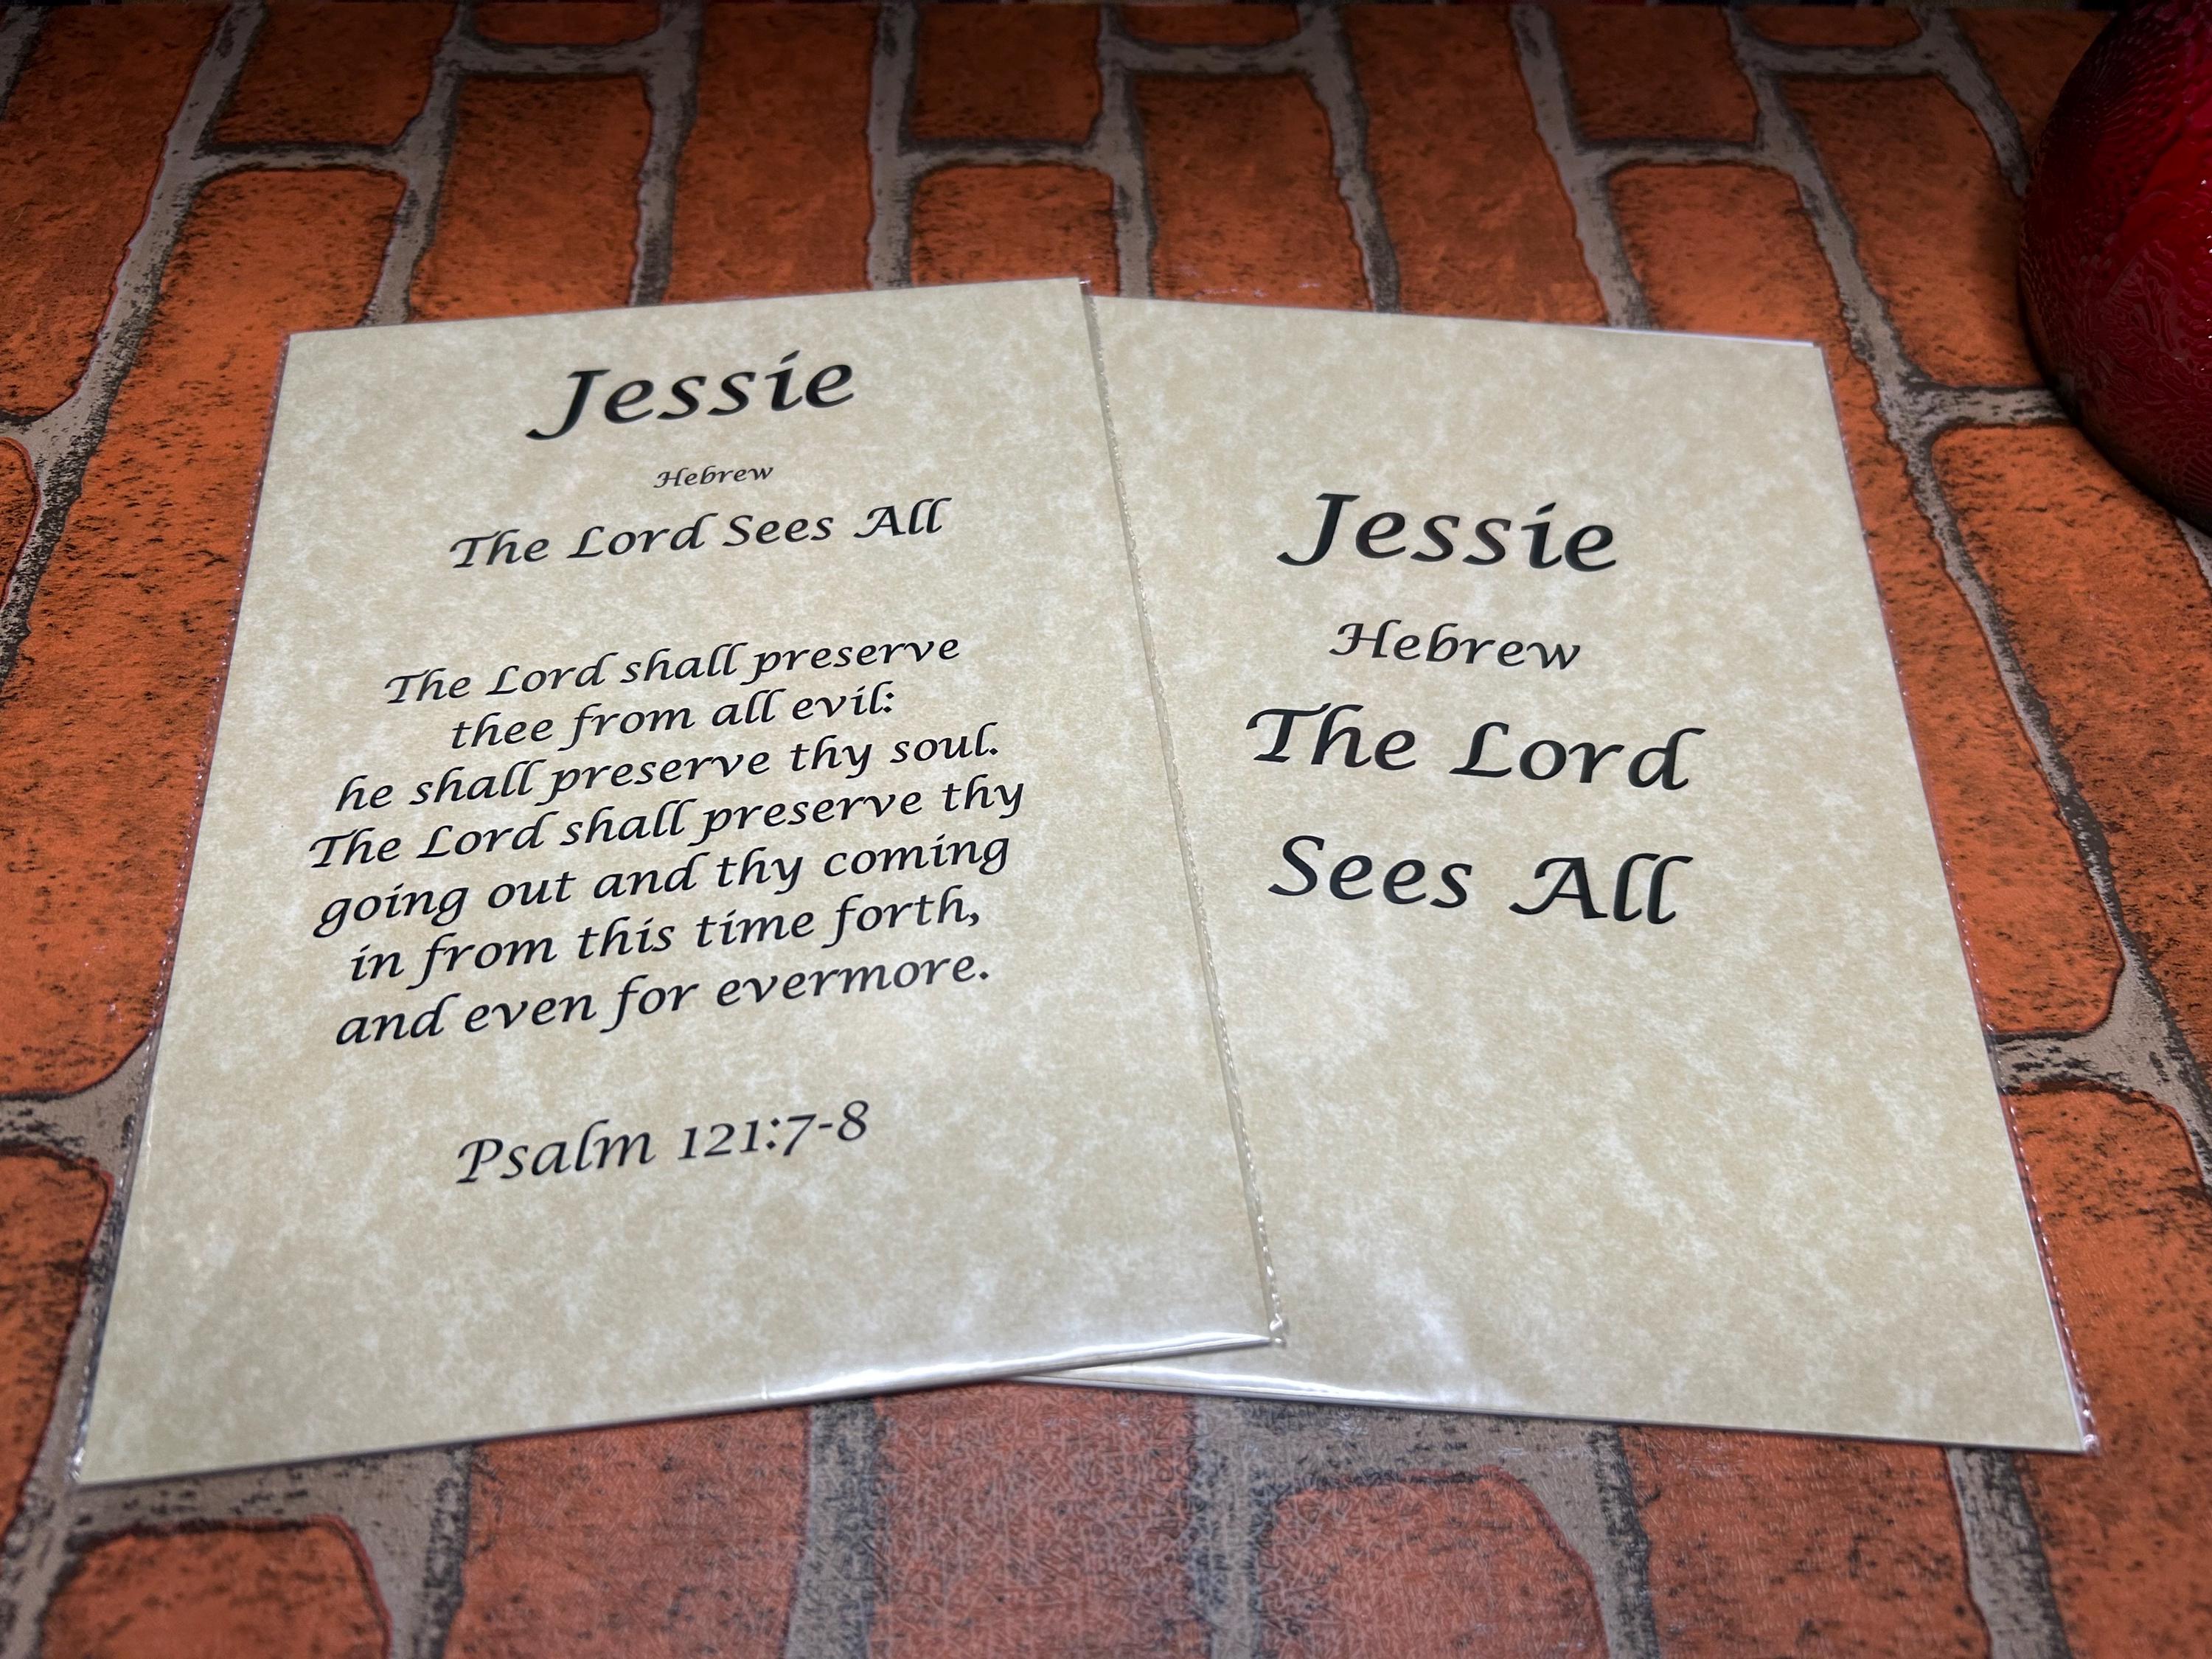 Jessie
Hebrew
The Lord Sees All
The Lord shall preserve
thee from all evil:
he shall preserve thy soul.
The Lord shall preserve thy
going out and thy coming
in from this time forth,
and even for evermore.
Psalm 121:7-8
Jessie
Hebrew
The Lord
Sees All